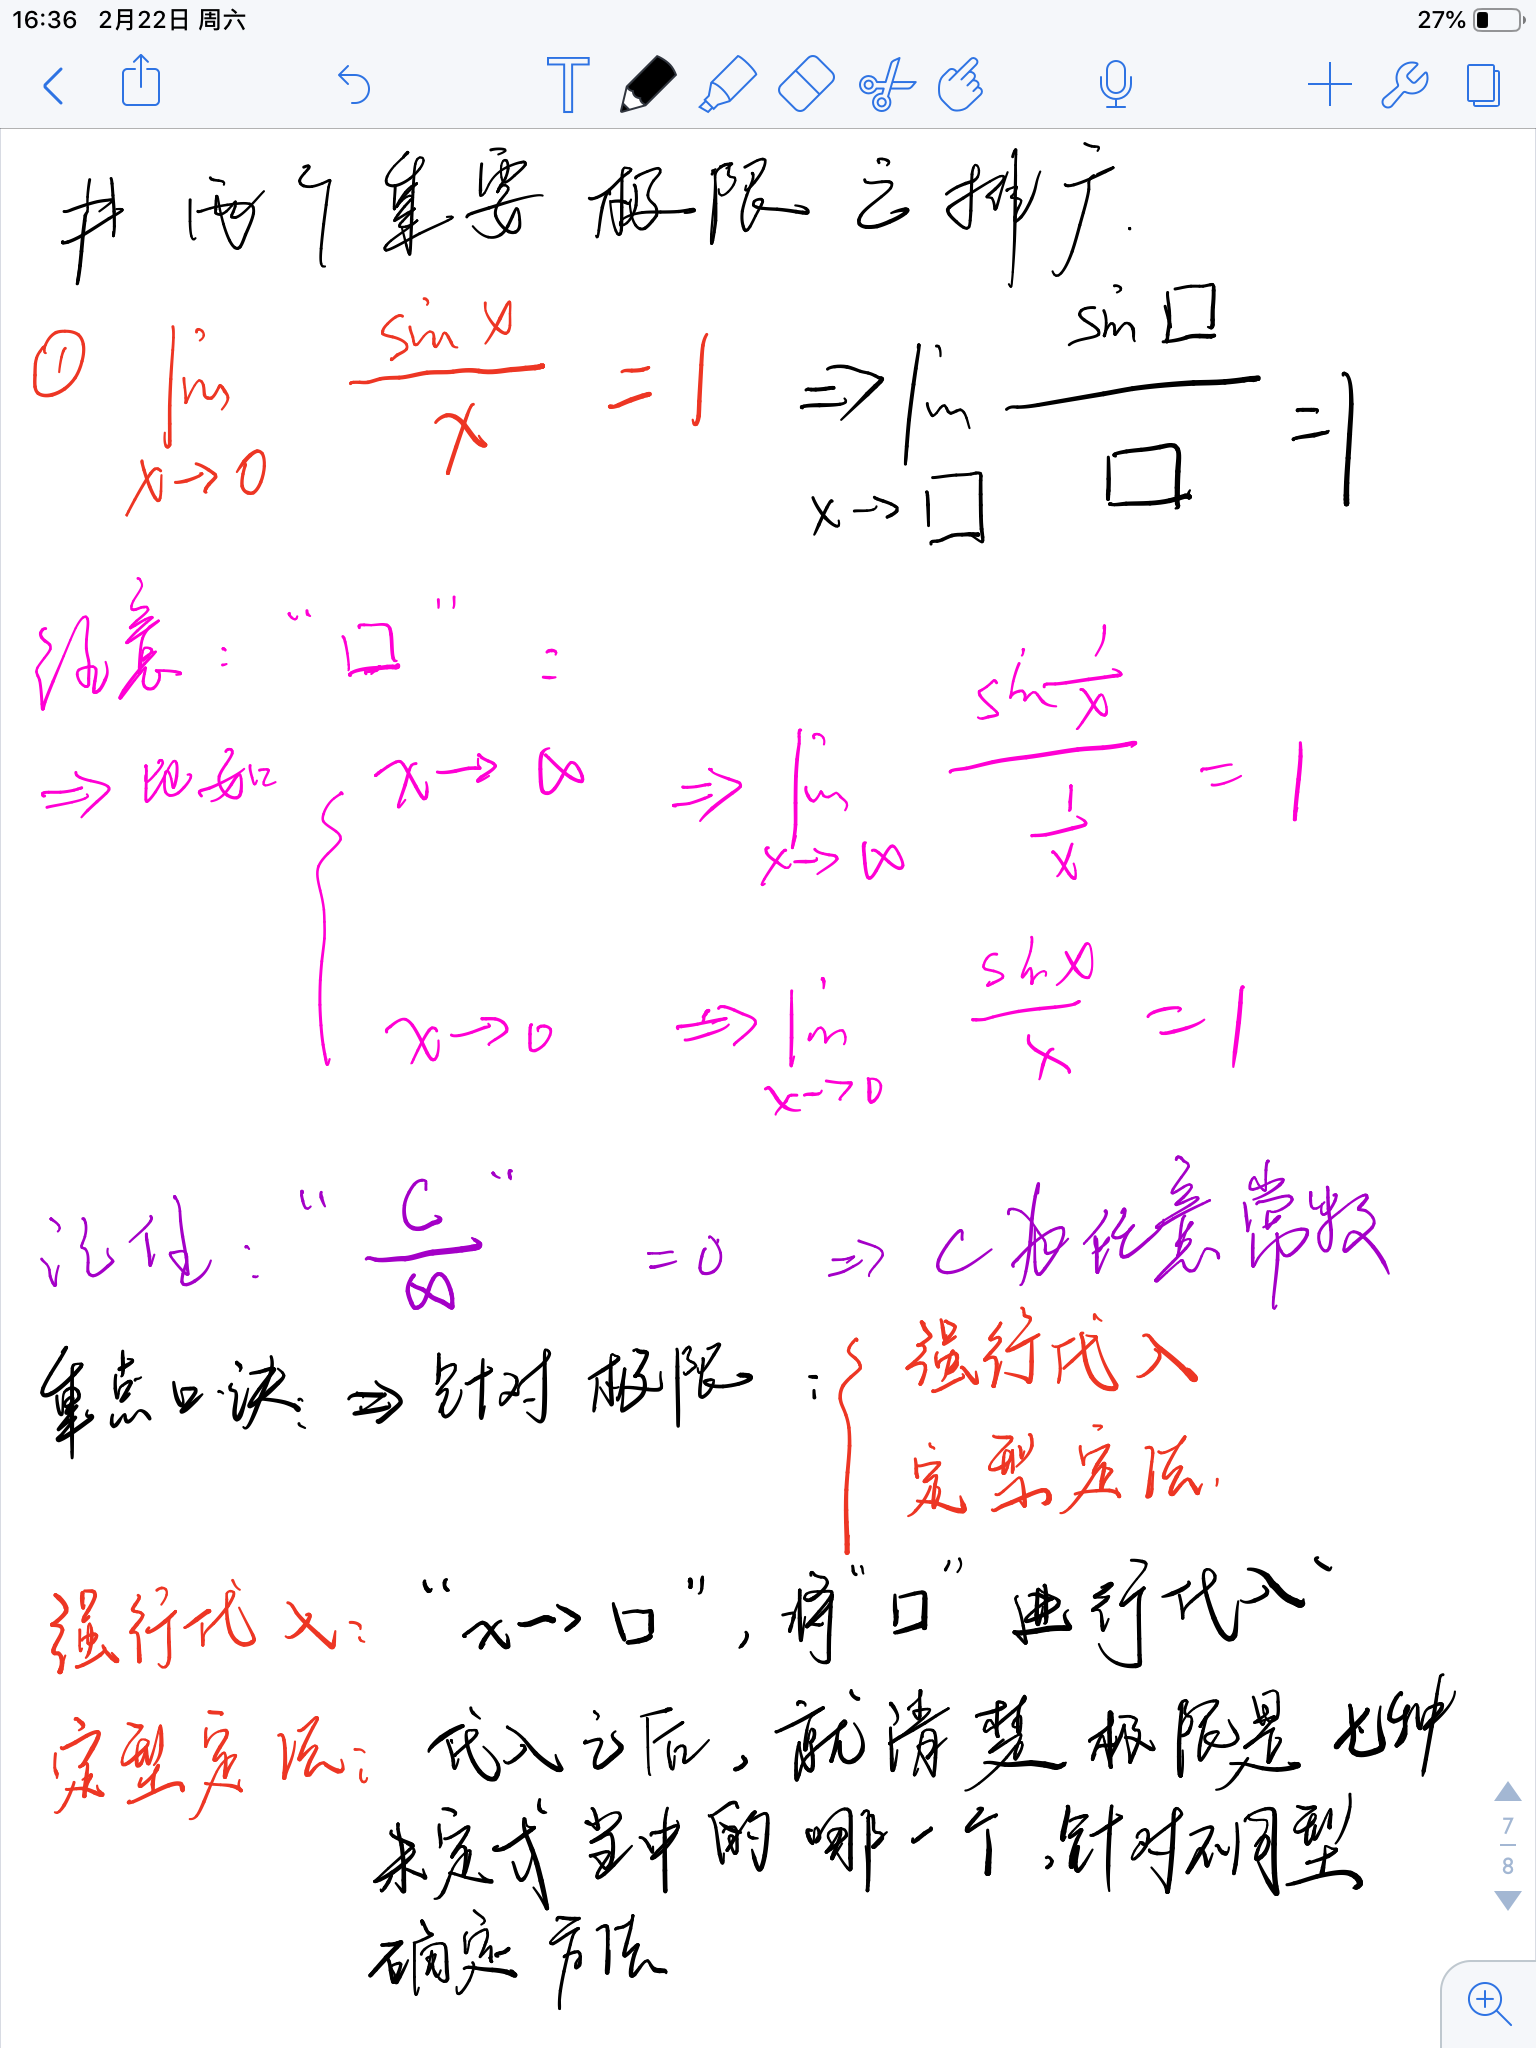 16:36 2月22日 周六 27%
# 两个重要极限之推广.
① lim x→0 sin x / x = 1 ⇒ lim x→□ sin □ / □ = 1
注意: “□” :
⇒ 比如 { x→∞ ⇒ lim x→∞ sin 1/x / 1/x = 1
x→0 ⇒ lim x→0 sin x / x = 1
记住: “C/∞” = 0 ⇒ C为任意常数
重点口诀: ⇒ 针对极限: { 强行代入
定型定法.
强行代入: “x→□”, 将“□”进行代入
定型定法: 代入之后, 就清楚极限是七种
未定式当中的哪一个, 针对不同型
确定方法
7
8